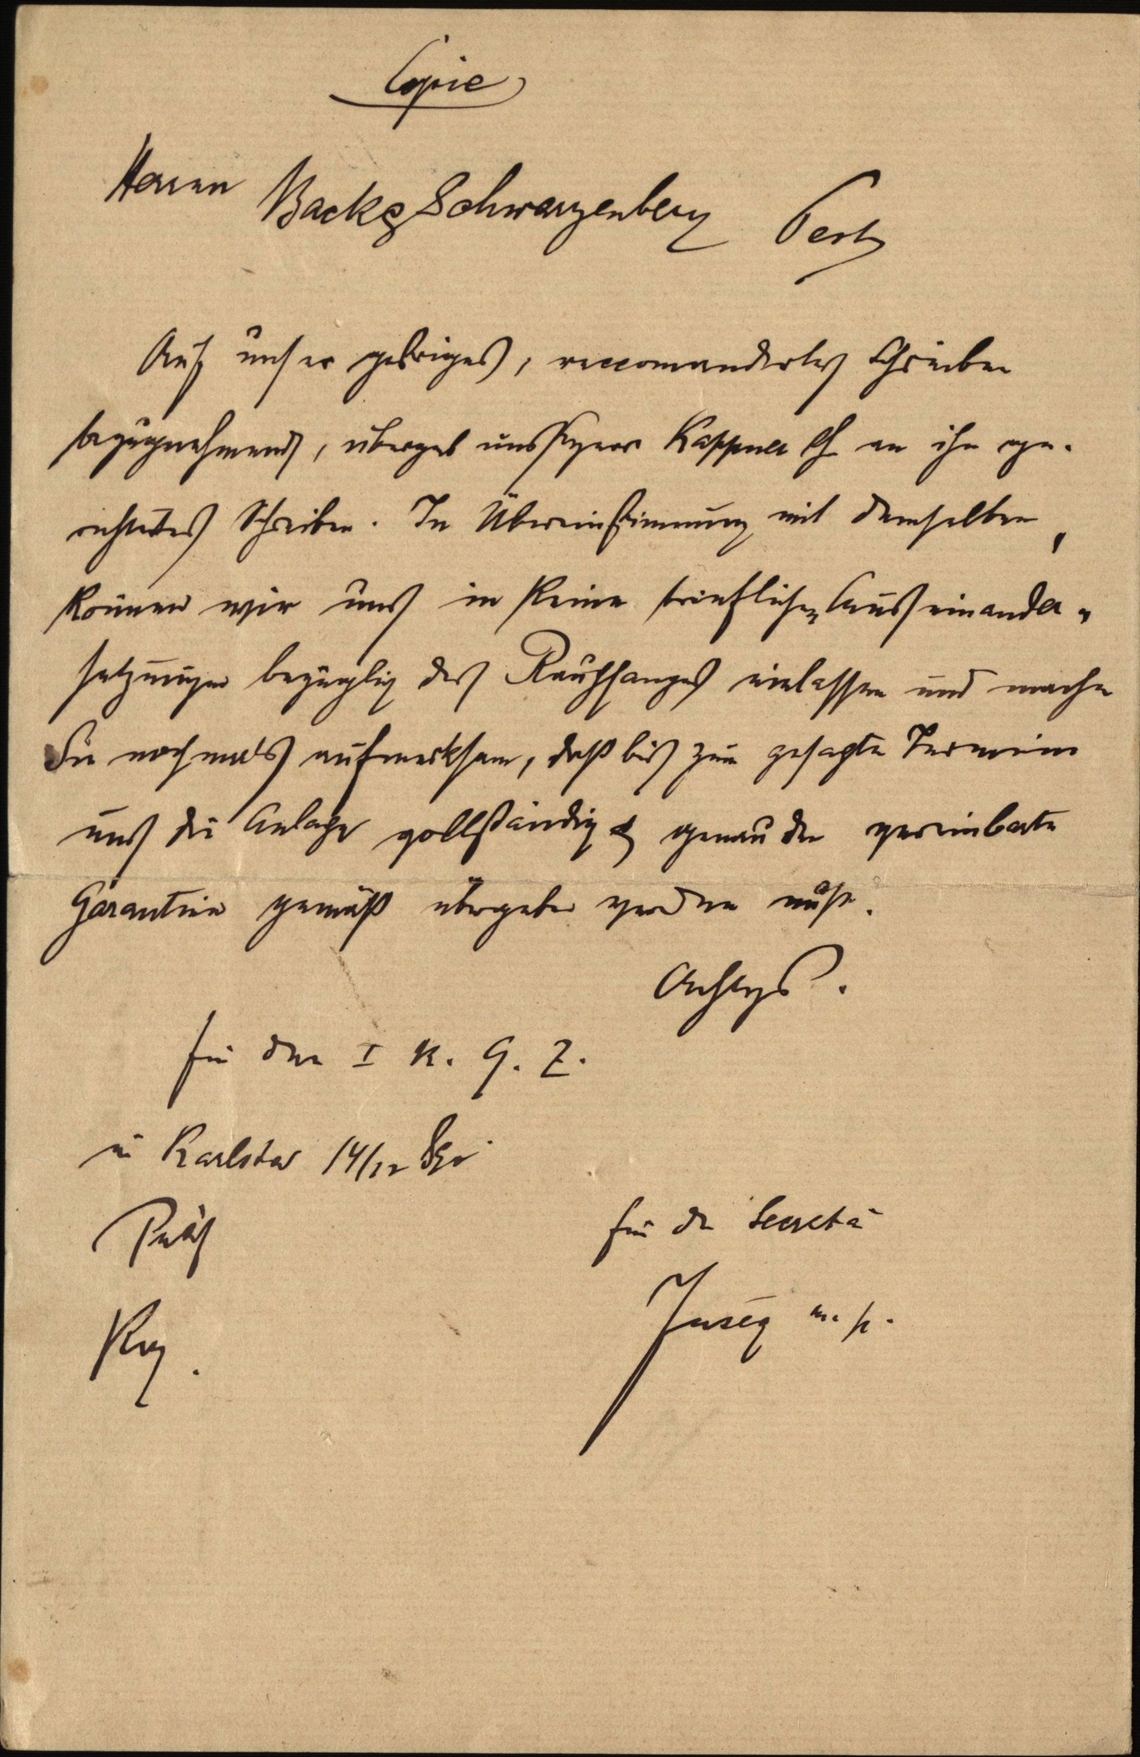 Copie
Herren Back & Schwarzenberg Pest
Auf unser gestriges, reccomandertes Schreiben
bezugnehmend, übergab uns Kappner an ihn ge-
richtetes Schreiben. In Übereinstimmung mit demselben,
können wir uns in keine briefliche Auseinander-
setzungen bezüglich des Rauchfanges einlassen und machen
Sie nochmals aufmerksam, daß bis zum gesagten Termine
uns die Anlage vollständig & genau den vereinbarten
Garantien gemäß übergeben werden muß.
Achtgs.
Für den I K. G. Z.
in 14/12
Präs Für den Secretär
m. p.